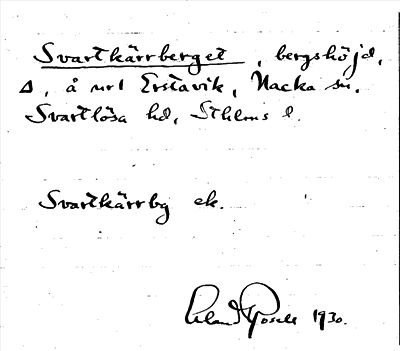 Svartkärrberget, bergshöjd,
Δ, å url Erstavik, Nacka sn.
Svartlösa hd, Sthlms l.
Svartkärrby ek.
1930.